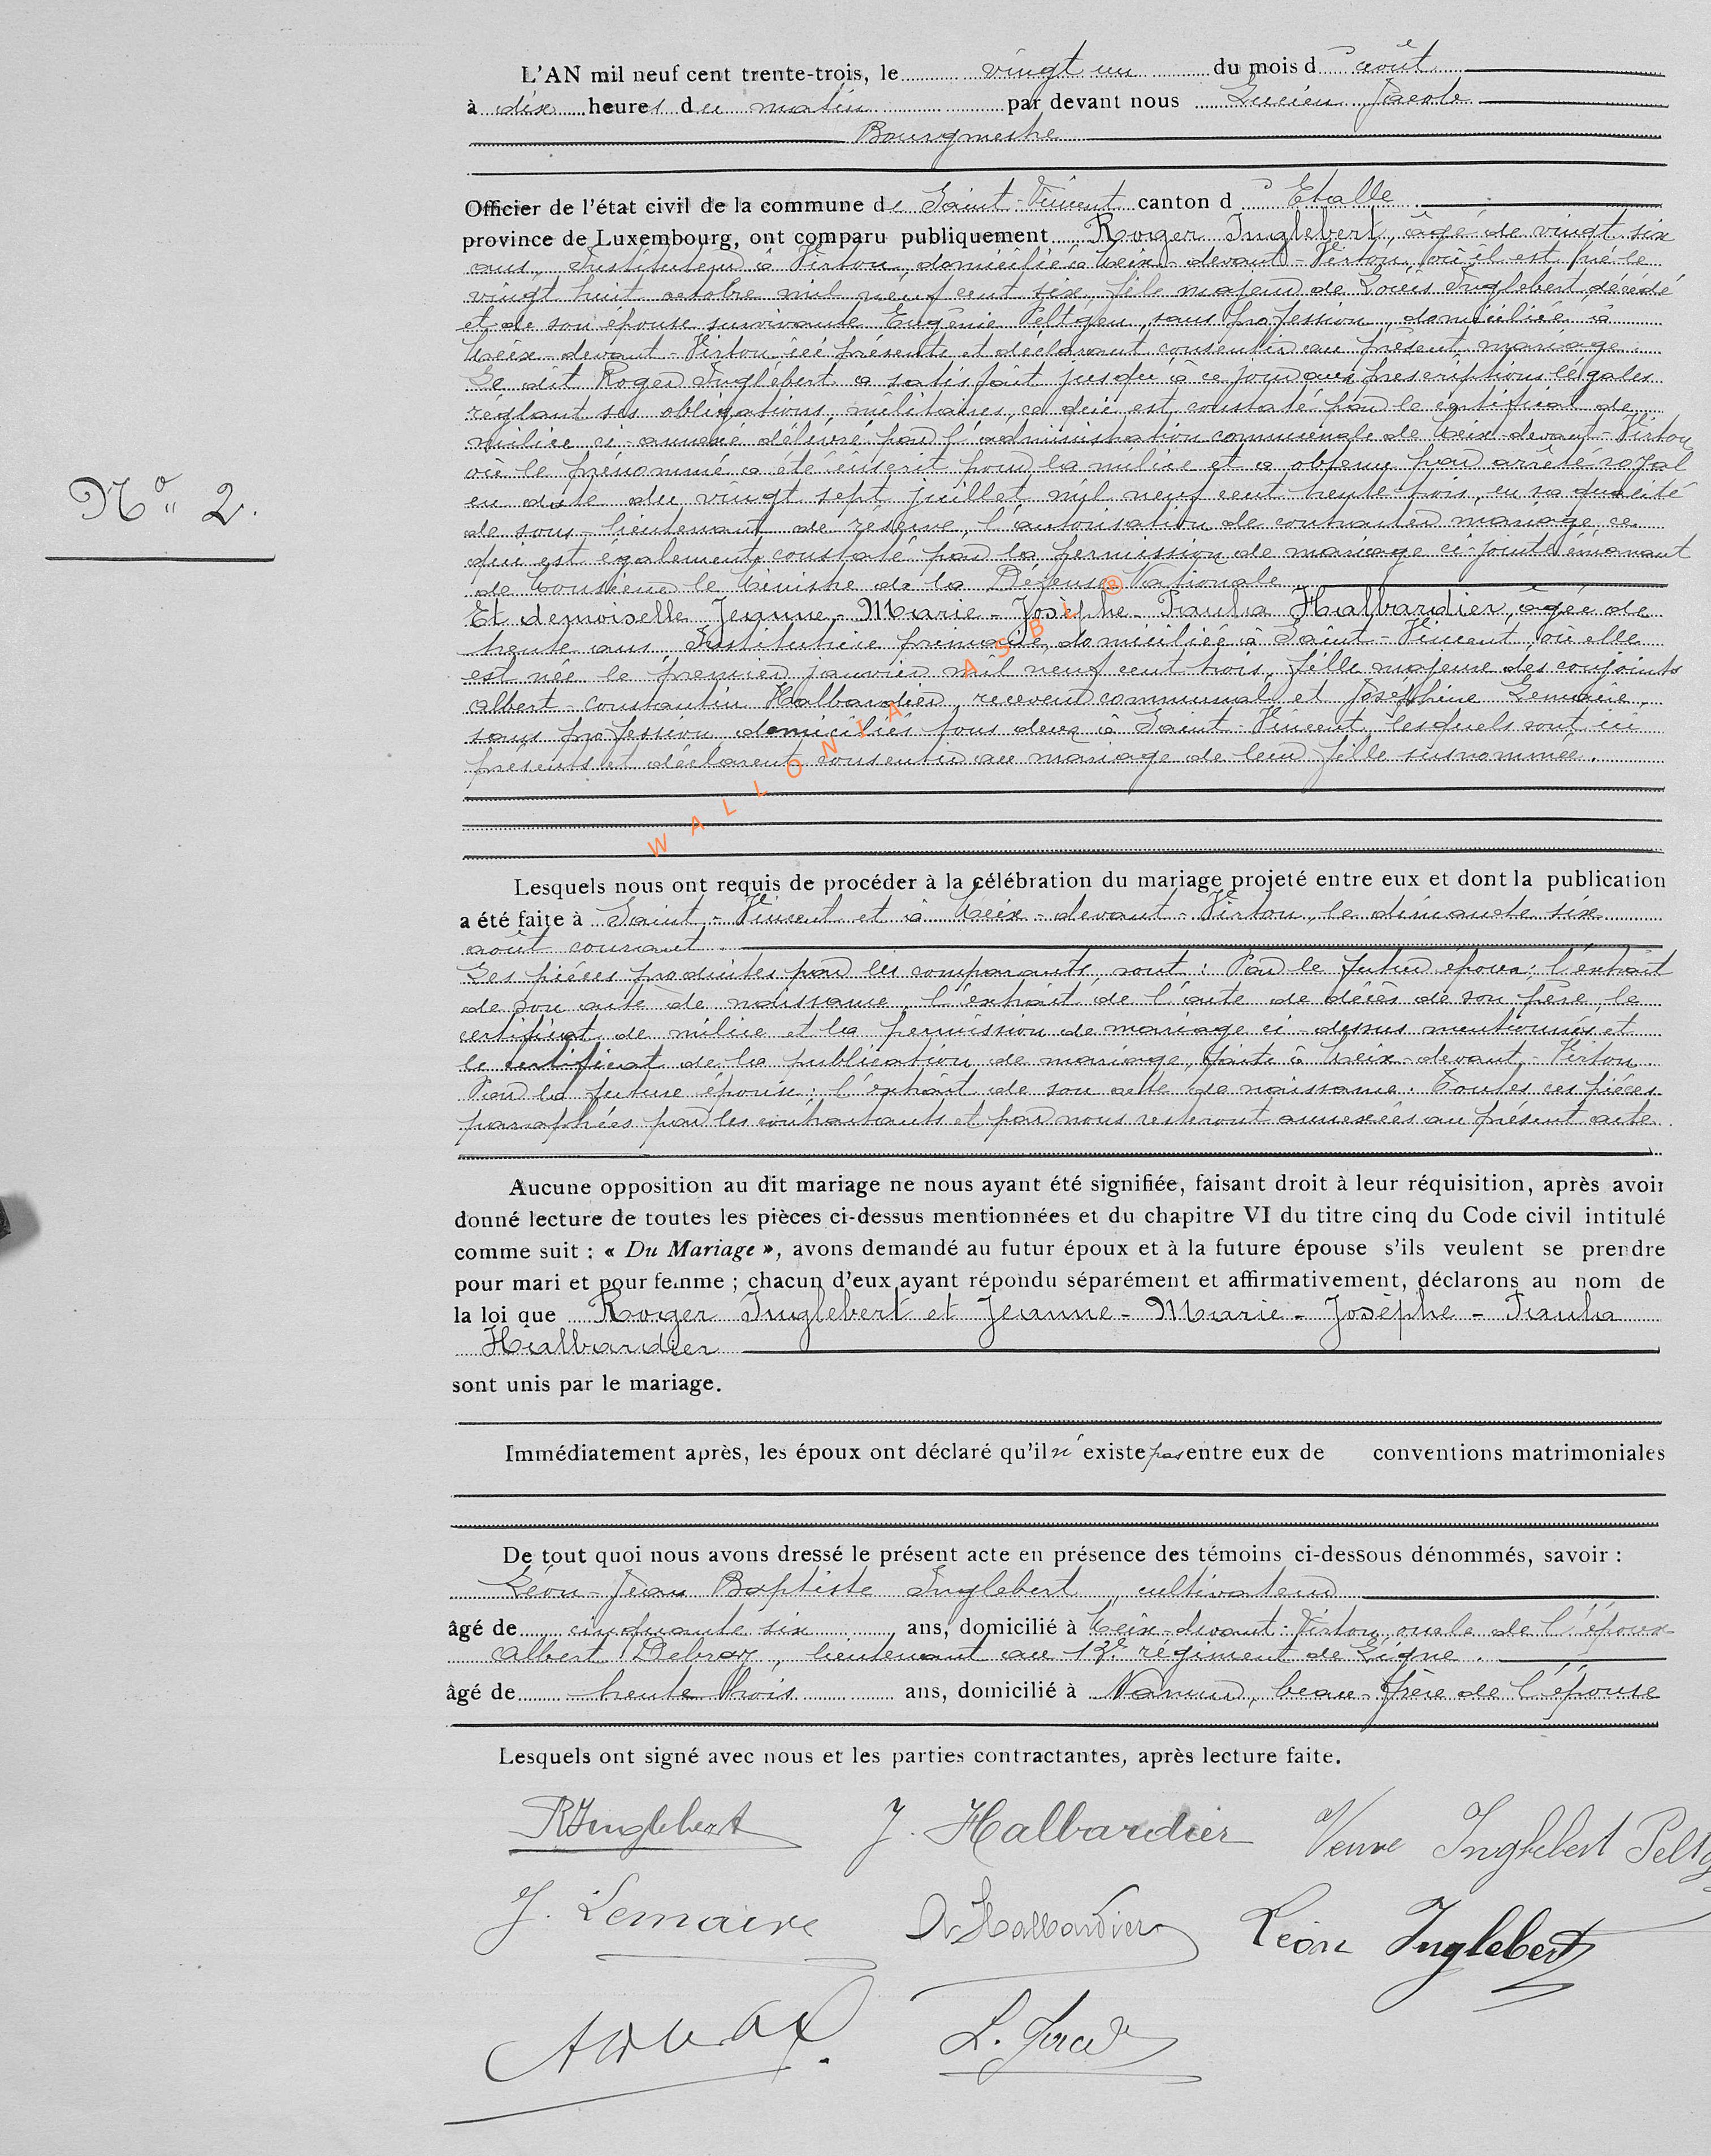 L'AN mil neuf cent trente-trois, le vingt un du mois d'août
à dix heures du matin par devant nous Lucien Jacob
Bourgmestre
Officier de l'état civil de la commune de Saint-Vincent canton d'Etalle
province de Luxembourg, ont comparu publiquement Roger Inglebert, âgé de vingt six
ans, Instituteur à Virton, domicilié à Meix-devant-Virton, où il est né le
vingt huit octobre mil neuf cent six, fils majeur de Louis Inglebert, décédé
et de son épouse survivante Eugénie Peltgen, sans profession, domiciliée à
Meix-devant-Virton, ici présente et déclarant consentir au présent mariage.
Le dit Roger Inglebert a satisfait jusqu'à ce jour aux prescriptions légales
réglant ses obligations militaires, ce qui est constaté par le certificat de
milice ci-annexé délivré par l'administration communale de Meix-devant-Virton
où le prénommé a été inscrit pour la milice et a obtenu par arrêté royal
en date du vingt sept juillet mil neuf cent trente-trois, en sa qualité
de sous-lieutenant de réserve, l'autorisation de contracter mariage, ce
qui est également constaté par la permission de mariage ci-jointe émanant
de Monsieur le Ministre de la Défense Nationale
Et demoiselle Jeanne-Marie-Josèphe-Paula Halbardier, âgée de
trente ans, Institutrice primaire, domiciliée à Saint-Vincent, où elle
est née le premier janvier mil neuf cent trois, fille majeure des conjoints
Albert-Constantin Halbardier, receveur communal, et Joséphine Lemaire,
sans profession, domiciliés tous deux à Saint-Vincent, lesquels sont ici
présents et déclarent consentir au mariage de leur fille susnommée.
WALLONIA ASBL ®
N° 2.
Lesquels nous ont requis de procéder à la célébration du mariage projeté entre eux et dont la publication
a été faite à Saint-Vincent et à Meix-devant-Virton, le dimanche six
août courant.
Les pièces produites par les comparants, sont: Par le futur époux: l'extrait
de son acte de naissance, l'extrait de l'acte de décès de son père, le
certificat de milice et la permission de mariage ci-dessus mentionnés, et
le certificat de la publication de mariage, faite à Meix-devant-Virton.
Par la future épouse: l'extrait de son acte de naissance. Toutes ces pièces
paraphées par les contractants et par nous resteront annexées au présent acte.
Aucune opposition au dit mariage ne nous ayant été signifiée, faisant droit à leur réquisition, après avoir
donné lecture de toutes les pièces ci-dessus mentionnées et du chapitre VI du titre cinq du Code civil intitulé
comme suit : « Du Mariage », avons demandé au futur époux et à la future épouse s'ils veulent se prendre
pour mari et pour femme ; chacun d'eux ayant répondu séparément et affirmativement, déclarons au nom de
la loi que Roger Inglebert et Jeanne-Marie-Josèphe-Paula
Halbardier
sont unis par le mariage.
Immédiatement après, les époux ont déclaré qu'il n'existe pas entre eux de conventions matrimoniales
De tout quoi nous avons dressé le présent acte en présence des témoins ci-dessous dénommés, savoir :
Léon-Jean Baptiste Inglebert, cultivateur
âgé de cinquante six ans, domicilié à Meix-devant-Virton, oncle de l'époux
Albert Debrax, lieutenant au 13e régiment de Ligne.
âgé de trente trois ans, domicilié à Namur, beau-frère de l'épouse
Lesquels ont signé avec nous et les parties contractantes, après lecture faite.
RInglebert J. Halbardier Veuve Inglebert Peltg
J. Lemaire A Halbardier Léon Inglebert
L. Jacob